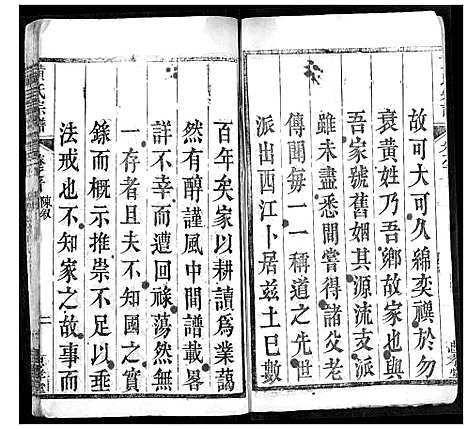 故可大可久綿奕禩於勿
衰黄姓乃吾鄉故家也與
吾家號舊姻其源流支派
雖未盡悉間嘗得諸父老
傳聞每一一稱道之先世
派出西江卜居兹土已數
百年矣家以耕讀爲業藹
然有醇謹風中間譜載畧
詳不幸而遭回祿蕩然無
一存者且夫不知國之寳
錄而概示推崇不足以垂
法戒也不知家之故事而
氏宗譜
陳敘
二